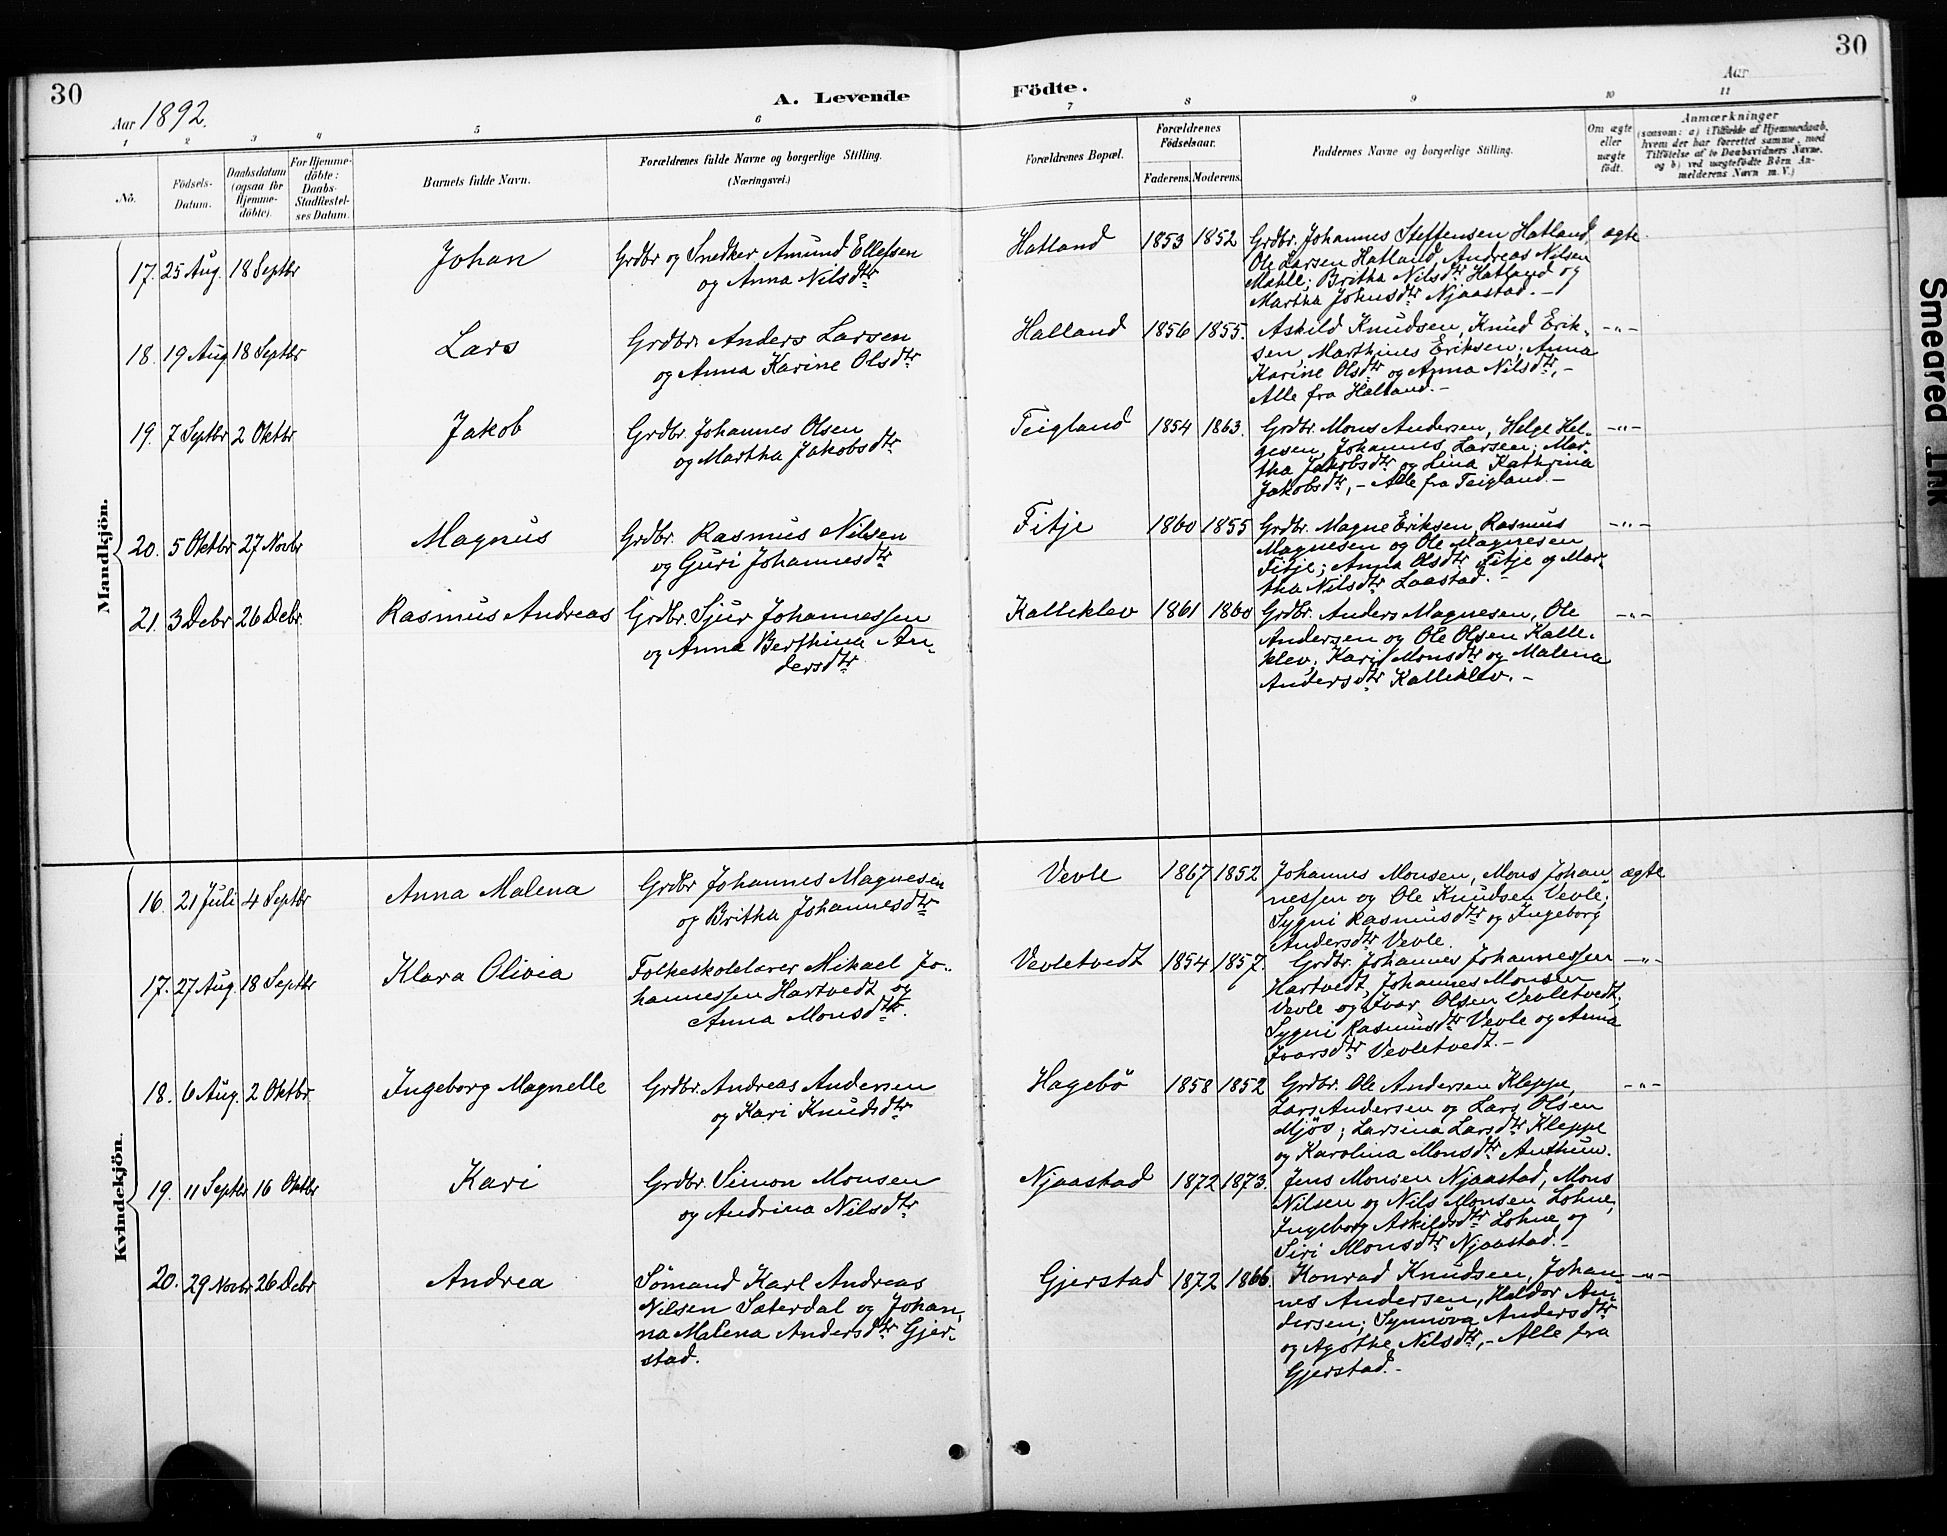 30
30
Aar 1892.
A. Levende
Födte.
Aar
1 2 3 4 5 6 7 8 9 10 11
Nö.
Födsels-
Datum.
Daabsdatum
(ogsaa for
Hjemme-
döbte).
For Hjemme-
döbte:
Daabs-
Stadfæstel-
ses Datum.
Barnets fulde Navn.
Forældrenes fulde Navne og borgerlige Stilling.
(Næringsvei.)
Forældrenes Bopæl.
Forældrenes
Födselsaar.
Faderens. Moderens.
Faddernes Navne og borgerlige Stilling.
Om ægte
eller
uægte
født.
Anmærkninger
(saasom: a) i Tilfælde af Hjemmedaab,
hvem der har forrettet samme, med
Tilföielse af to Daabsvidners Navne,
og b) ved uægtefödte Börn An-
melderens Navn m. V.)
Mandkjön.
17. 25 Aug. 18 Septbr
Johan
Grdbr og Snedker Amund Ellefsen
og Anna Nilsdtr
Hatland
1853 1852
Grdbr. Johannes Steffensen Hatland,
Ole Larsen Hatland, Andreas Nilsen
Mæhle; Britha Nilsdtr Hatland og
Martha Johnsdtr Njaastad. -
ægte
18. 19 Aug 18 Septbr
Lars
Grdbr. Anders Larsen
og Anna Karine Olsdtr
Halland
1856 1855.
Askild Knudsen, Knud Erik-
sen, Marthines Eriksen; Anna
Karine Olsdtr og Anna Nilsdtr, -
Alle fra Halland. -
-"-
19. 7 Septbr 2 Oktbr
Jakob
Grdbr. Johannes Olsen
og Martha Jakobsdtr
Teigland
1854 1863.
Grdbr. Mons Andersen, Helge Hel-
gesen, Johannes Larsen; Mar-
tha Jakobsdtr og Lina Kathrina
Jakobsdtr, - Alle fra Teigland. -
-"-
20. 5 Oktbr 27 Novbr
Magnus
Grdbr. Rasmus Nilsen
og Guri Johannesdtr
Fitje
1860 1855
Grdbr. Magne Eriksen, Rasmus
Magnesen og Ole Magnesen
Fitje; Anna Olsdtr Fitje og Mar-
tha Nilsdtr Laastad. -
-"-
21. 3 Debr 26 Debr.
Rasmus Andreas
Grdbr. Sjur Johannessen
og Anna Berthina An-
dersdtr
Kalleklev
1861 1860
Grdbr. Anders Magnesen, Ole
Andersen og Ole Olsen Kalle-
klev; Kari Monsdtr og Malena
Andersdtr Kalleklev. -
-"-
Kvindekjön.
16. 21 Juli 4 Septbr
Anna Malena
Grdbr Johannes Magnesen
og Britha Johannesdtr
Vevle
1867 1852
Johannes Monsen, Mons Johan
nessen og Ole Knudsen Vevle;
Sygni Rasmusdtr og Ingeborg
Andersdtr Vevle.
ægte
17. 27 Aug. 18 Septbr
Klara Olivia
Folkeskolelærer Mikael Jo-
hannessen Hartvedt og
Anna Monsdtr.
Vevletvedt
1854 1857.
Grdbr. Johannes Johannessen
Hartvedt, Johannes Monsen
Vevle og Ivar Olsen Vevletvedt;
Sygni Rasmusdtr Vevle og Anna
Ivarsdtr Vevletvedt. -
-"-
18. 6 Aug. 2 Oktbr
Ingeborg Magnelle
Grdbr. Andreas Andersen
og Kari Knudsdtr
Hagebö
1858 1852
Grdbr. Ole Andersen Kleppe,
Lars Andersen og Lars Olsen
Mjös; Larsina Larsdtr Kleppe
og Karolina Monsdtr Authun.
-"-
19. 11 Septbr 16 Oktbr
Kari
Grdbr. Simon Monsen
og Andrina Nilsdtr
Njaastad
1872 1873.
Jens Monsen Njaastad, Mons
Nilsen og Nils Monsen Lohne;
Ingeborg Askildsdtr Lohne og
Siri Monsdtr Njaastad. -
20. 29 Novbr 26 Debr
Andrea
Sömand Karl Andreas
Nilsen Sæterdal og Johan,
na Malena Andersdtr Gjer-
stad.
Gjerstad
1872 1866.
Konrad Knudsen, Johan-
nes Andersen, Haldor An-
dersen; Synnöva Andersdtr
og Agothe Nilsdtr, - Alle fra
Gjerstad. -
-"-
Smeared Ink